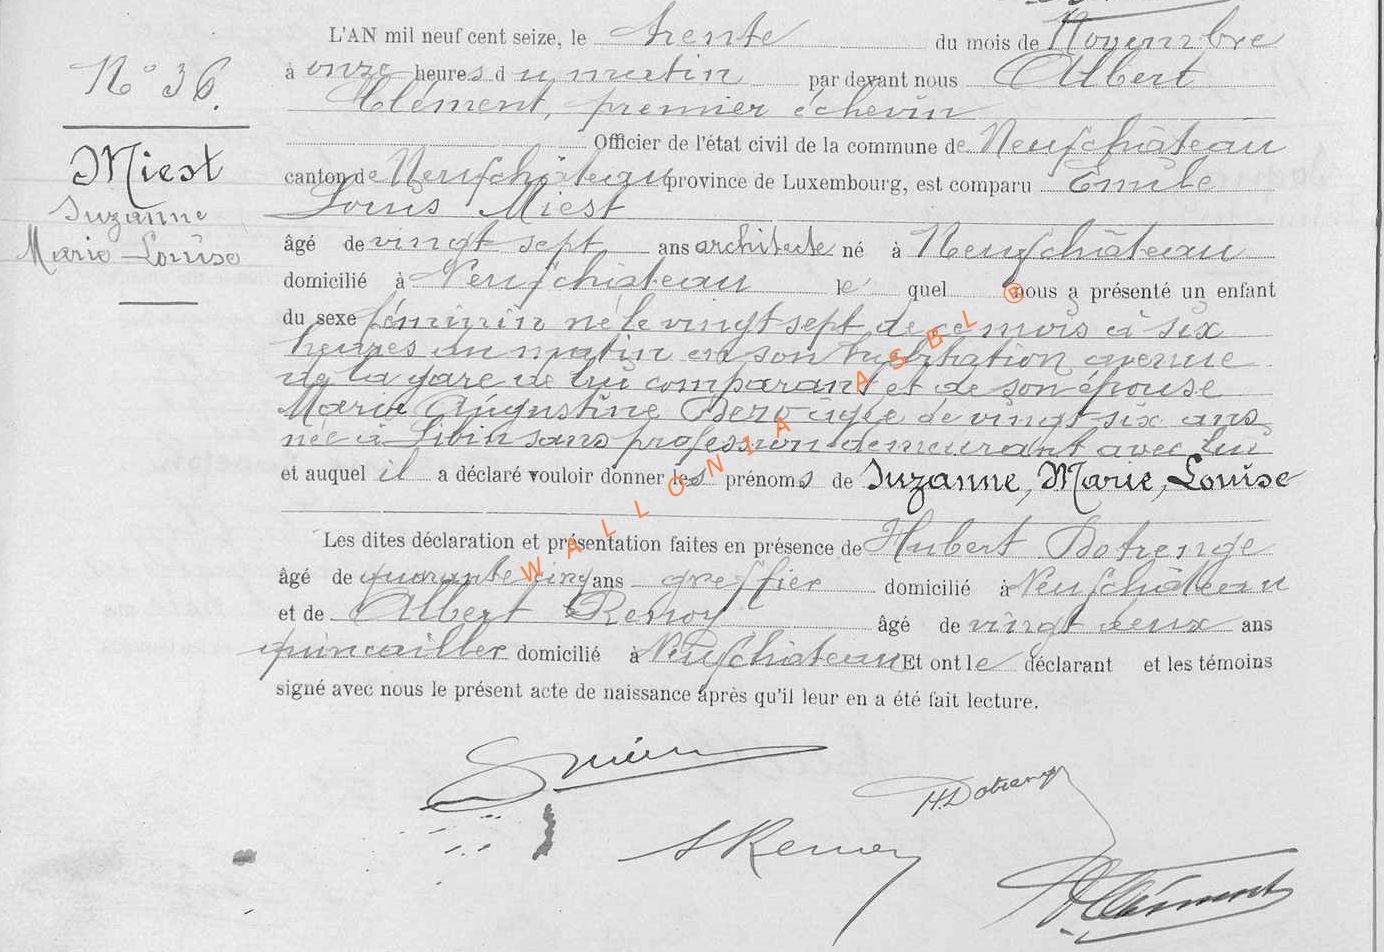 L'AN mil neuf cent seize, le trente du mois de Novembre
N° 36.
à onze heures du matin par devant nous Albert
Clément, premier échevin
Officier de l'état civil de la commune de Neufchâteau
Miest
Suzanne
Marie-Louise
canton de Neufchâteau province de Luxembourg, est comparu Emile
Louis Miest
âgé de vingt sept ans architecte né à Neufchâteau
domicilié à Neufchâteau le quel nous a présenté un enfant
du sexe féminin né le vingt sept de ce mois à six
heures du matin en son habitation avenue
de la gare de lui comparant et de son épouse
Marie Augustine âgée de vingt-six ans
née à Libin sans profession demeurant avec lui
et auquel il a déclaré vouloir donner les prénoms de Suzanne, Marie, Louise
Les dites déclaration et présentation faites en présence de Hubert Dotrenge
âgé de quarante cinq ans greffier domicilié à Neufchâteau
et de Albert Remoy âgé de vingt deux ans
quincailler domicilié à Neufchâteau Et ont le déclarant et les témoins
signé avec nous le présent acte de naissance après qu'il leur en a été fait lecture.
H. Dotrenge
A Remoy
A Clément
WALLONIA ASBL ®